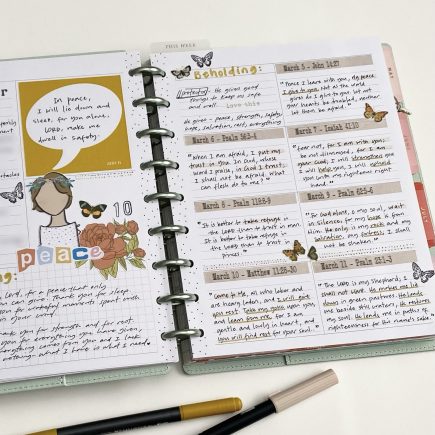 r
In peace,
I will lie down and
sleep, for you alone,
LORD, make me
dwell in safety.
10
peace
Lord, for a peace that only
you give. Thank you for sleep
Thank you for strength and for rest
for everything you have given,
everything comes from you and I lack
nothing. what I have is what I need.
THIS WEEK
Beholding:
Protector: He gives good
things to keep us safe
and well.
Love this
He gives - peace, strength, safety,
hope, salvation, rest, everything
March 5 - John 14:27
"Peace I leave with you, my peace
I give to you. Not as the world
gives do I give to you. Let not
your hearts be troubled, neither
let them be afraid."
March 6 - Psalm 56:3-4
"When I am afraid, I put my
trust in you. In God, whose
word I praise, in God I trust;
I shall not be afraid. What
can flesh do to me?"
March 7 - Isaiah 41:10
"Fear not, for I am with you;
be not dismayed, for I am
your God; I will strengthen you
I will help you, I will uphold
you with my righteous
right hand."
March 8 - Psalm 118:8-9
It is better to take refuge in
the LORD than to trust in man.
It is better to take refuge in
the LORD than to trust in
princes."
March 9 - Psalm 62:5-6
"For God alone, my soul, wait
in silence, for my hope is from
him. He only is my rock and my
salvation, my fortress; I shall
not be shaken."
March 10 - Matthew 11:28-30
"Come to Me, all who labor and
are heavy laden, and I will give
you rest. Take my yoke upon you,
and learn from me, for I am
gentle and lowly in heart, and
you will find rest for your souls."
March 11 - Psalm 23:1-3
"The LORD is my shepherd; I
shall not want. He makes me lie
down in green pastures. He leads
me beside still waters. He restores
my soul. He leads me in paths of
righteousness for his name's sake."